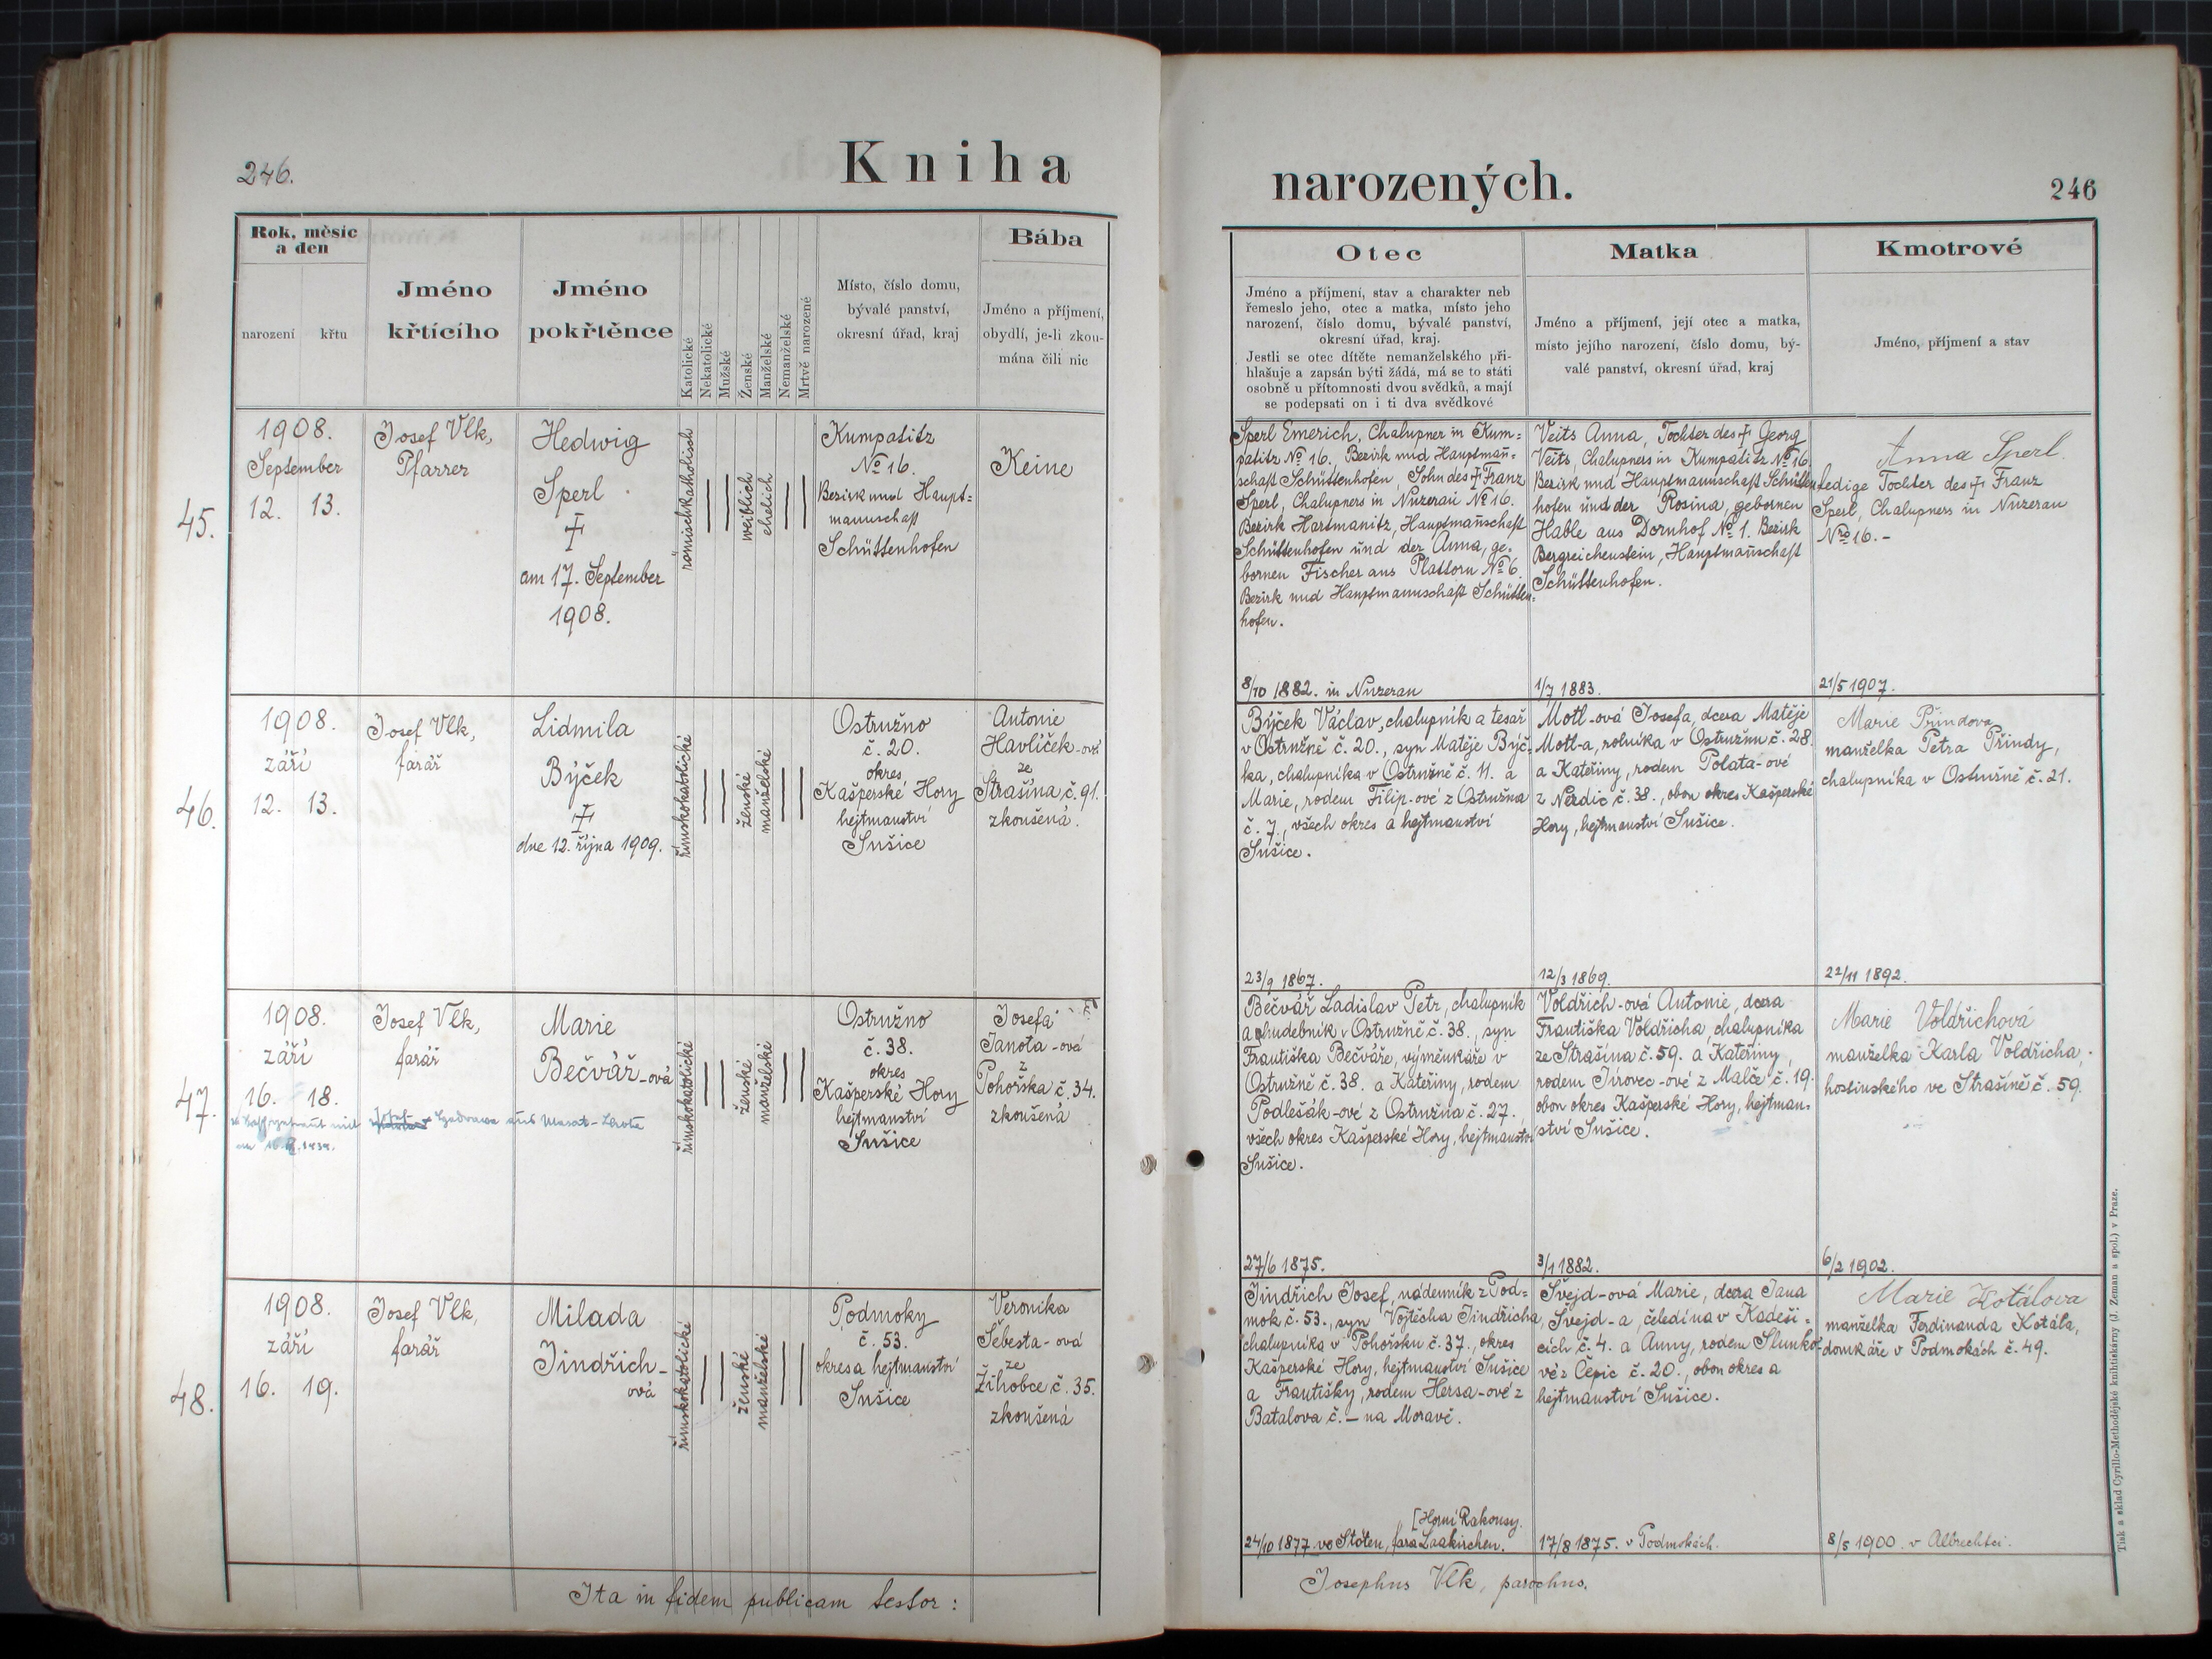 246.
Kniha
narozených.
246
Rok, měsíc
a den
narození
křtu
Jméno
křtícího
Jméno
pokřtěnce
Katolické
Nekatolické
Mužské
Ženské
Manželské
Nemanželské
Mrtvě narozené
Místo, číslo domu,
bývalé panství,
okresní úřad, kraj
Bába
Jméno a příjmení,
obydlí, je-li zkou-
mána čili nic
Otec
Jméno a příjmení, stav a charakter neb
řemeslo jeho, otec a matka, místo jeho
narození, číslo domu, bývalé panství,
okresní úřad, kraj.
Jestli se otec dítěte nemanželského při-
hlašuje a zapsán býti žádá, má se to státi
osobně u přítomnosti dvou svědků, a mají
se podepsati on i ti dva svědkové
Matka
Jméno a příjmení, její otec a matka,
místo jejího narození, číslo domu, bý-
valé panství, okresní úřad, kraj
Kmotrové
Jméno, příjmení a stav
45.
1908.
September
12. 13.
Josef Vlk,
Pfarrer
Hedwig
Sperl
am 17. September
1908.
römischkatholisch
weiblich
ehelich
Kumpatitz
No 16.
Bezirk und Haupt=
mannschaft
Schüttenhofen
Keine
Sperl Emerich, Chalupner in Kum=
patitz No 16. Bezirk und Hauptmañ=
schaft Schüttenhofen, Sohn des Franz
Sperl, Chalupners in Nuzerau No 16.
Bezirk Hartmanitz, Hauptmañschaft
Schüttenhofen und der Anna, ge-
bornen Fischer aus Plattorn No 6.
Bezirk und Hauptmannschaft Schütten=
hofen.
8/10 1882. in Nuzerau
Veits Anna, Tochter des Georg
Veits, Chalupners in Kumpatitz No 16
Bezirk und Hauptmannschaft Schütten
hofen und der Rosina, gebornen
Hable aus Dornhof No 1. Bezirk
Bergreichenstein, Hauptmañschaft
Schüttenhofen.
1/7 1883.
Anna Sperl.
Ledige Tochter des Franz
Sperl, Chalupners in Nuzerau
Nro 16.-
21/5 1907.
46.
1908.
září
12. 13.
Josef Vlk,
farář
Lidmila
Býček
dne 12. října 1909.
římskokatolické
ženské
manželské
Ostružno
č. 20.
okres
Kašperské Hory
hejtmanství
Sušice
Antonie
Havlíček-ová
ze
Strašína, č. 91.
zkoušená.
Býček Václav, chalupník a tesař
v Ostružně č. 20., syn Matěje Býč-
ka, chalupníka v Ostružně č. 11. a
Marie, rodem Filip-ové z Ostružna
č. 7., všech okres a hejtmanství
Sušice.
23/9 1867.
Motl-ová Josefa, dcera Matěje
Motl-a, rolníka v Ostružnu č. 28.
a Kateřiny, rodem Polata-ové
z Nezdic č. 38., obou okres Kašperské
Hory, hejtmanství Sušice.
12/3 1869.
Marie Přindova
manželka Petra Přindy,
chalupníka v Ostružně č. 21.
22/11 1892.
47.
1908.
září
16. 18.
Josef Vlk,
farář
Marie
Bečvář-ová
aus
římskokatolické
ženské
manželské
Ostružno
č. 38.
okres
Kašperské Hory
hejtmanství
Sušice
Josefa
Janota-ová
z
Pohorska č. 34.
zkoušená
Bečvář Ladislav Petr, chalupník
a hudebník v Ostružně č. 38., syn
Františka Bečváře, výměnkáře v
Ostružně č. 38. a Kateřiny, rodem
Podlešák-ové z Ostružna č. 27.
všech okres Kašperské Hory, hejtmanství
Sušice.
27/6 1875.
Voldřich-ová Antonie, dcera
Františka Voldřicha, chalupníka
ze Strašína č. 59. a Kateřiny,
rodem Jirovec-ové z Malče č. 19.
obou okres Kašperské Hory, hejtman-
ství Sušice.
3/1 1882.
Marie Voldřichová
manželka Karla Voldřicha,
hostinského ve Strašíně č. 59.
6/2 1902.
48.
1908.
září
16. 19.
Josef Vlk,
farář
Milada
Jindřich-
ová
římskokatolické
ženské
manželské
Podmoky
č. 53.
okres a hejtmanství
Sušice
Veronika
Šebesta-ová
ze
Žihobce č. 35.
zkoušená
Jindřich Josef, nádenník z Pod=
mok č. 53., syn Vojtěcha Jindřicha,
chalupníka v Pohorsku č. 37., okres
Kašperské Hory, hejtmanství Sušice
a Františky, rodem Hersa-ové z
Batalova č. — na Moravě.
[Horní Rakousy.
24/10 1877 ve Stöten, fara Laakirchen.
Švejd-ová Marie, dcera Jana
Švejd-a, čeledína v Kadeši=
cích č. 4. a Anny, rodem Slunko-
vé z Čepic č. 20., obou okres a
hejtmanství Sušice.
17/8 1875. v Podmokách.
Marie Kotálova
manželka Ferdinanda Kotála,
domkáře v Podmokách č. 49.
8/5 1900. v Albrechtci.
Ita in fidem publicam testor:
Josephus Vlk, parochus.
Tisk a sklad Cyrillo-Methodějské knihtiskárny (J. Zeman a spol.) v Praze.